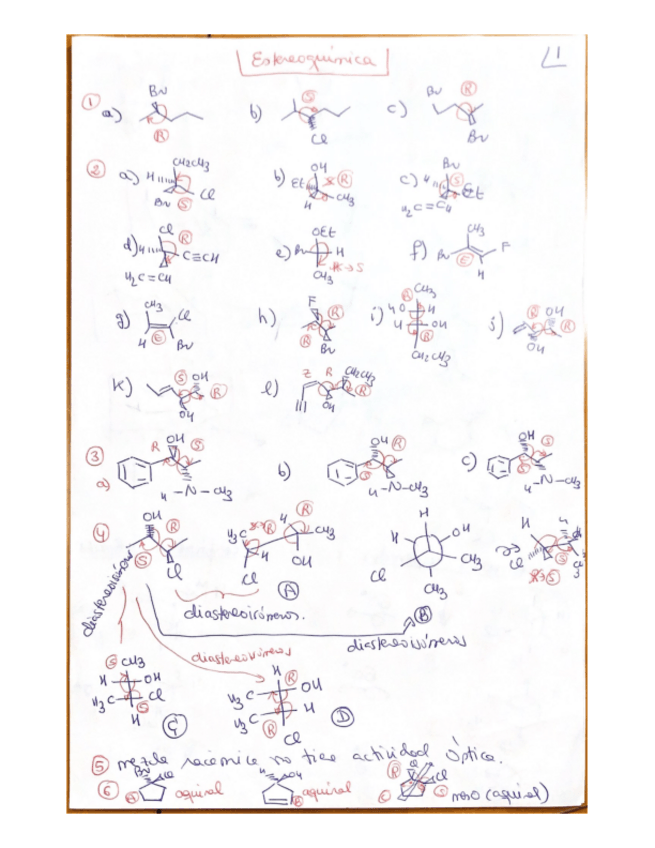 Estereoquímica
1
① a) Br R b) S Cl c) Br R Br
② a) CH2CH3 H Cl Br S b) OH Et R CH3 H c) Br H S Et H2C=CH
d) Cl R H C≡CH H2C=CH e) OEt Br H CH3 R→S f) CH3 Br F E H
g) CH3 Cl H E Br h) F R R Br i) R CH3 HO H H OH CH2CH3 j) R OH R OH
k) S OH R OH l) Z R CH2CH3 R OH
③ a) R OH S H-N-CH3 b) OH R S H-N-CH3 c) OH S S H-N-CH3
④ OH R S Cl H3C R H R CH3 H OH Cl A H H OH Cl CH3 CH3 B H H Cl CH3 R→S
diastereoisómeros
diastereoisómeros.
diastereoisómeros
diastereoisómeros
S CH3 H OH H3C Cl S H C
H R OH H3C H3C H R Cl D
⑤ mezcla racémica no tiene actividad óptica.
⑥ Br aquiral H OH aquiral R Cl meso (aquiral)